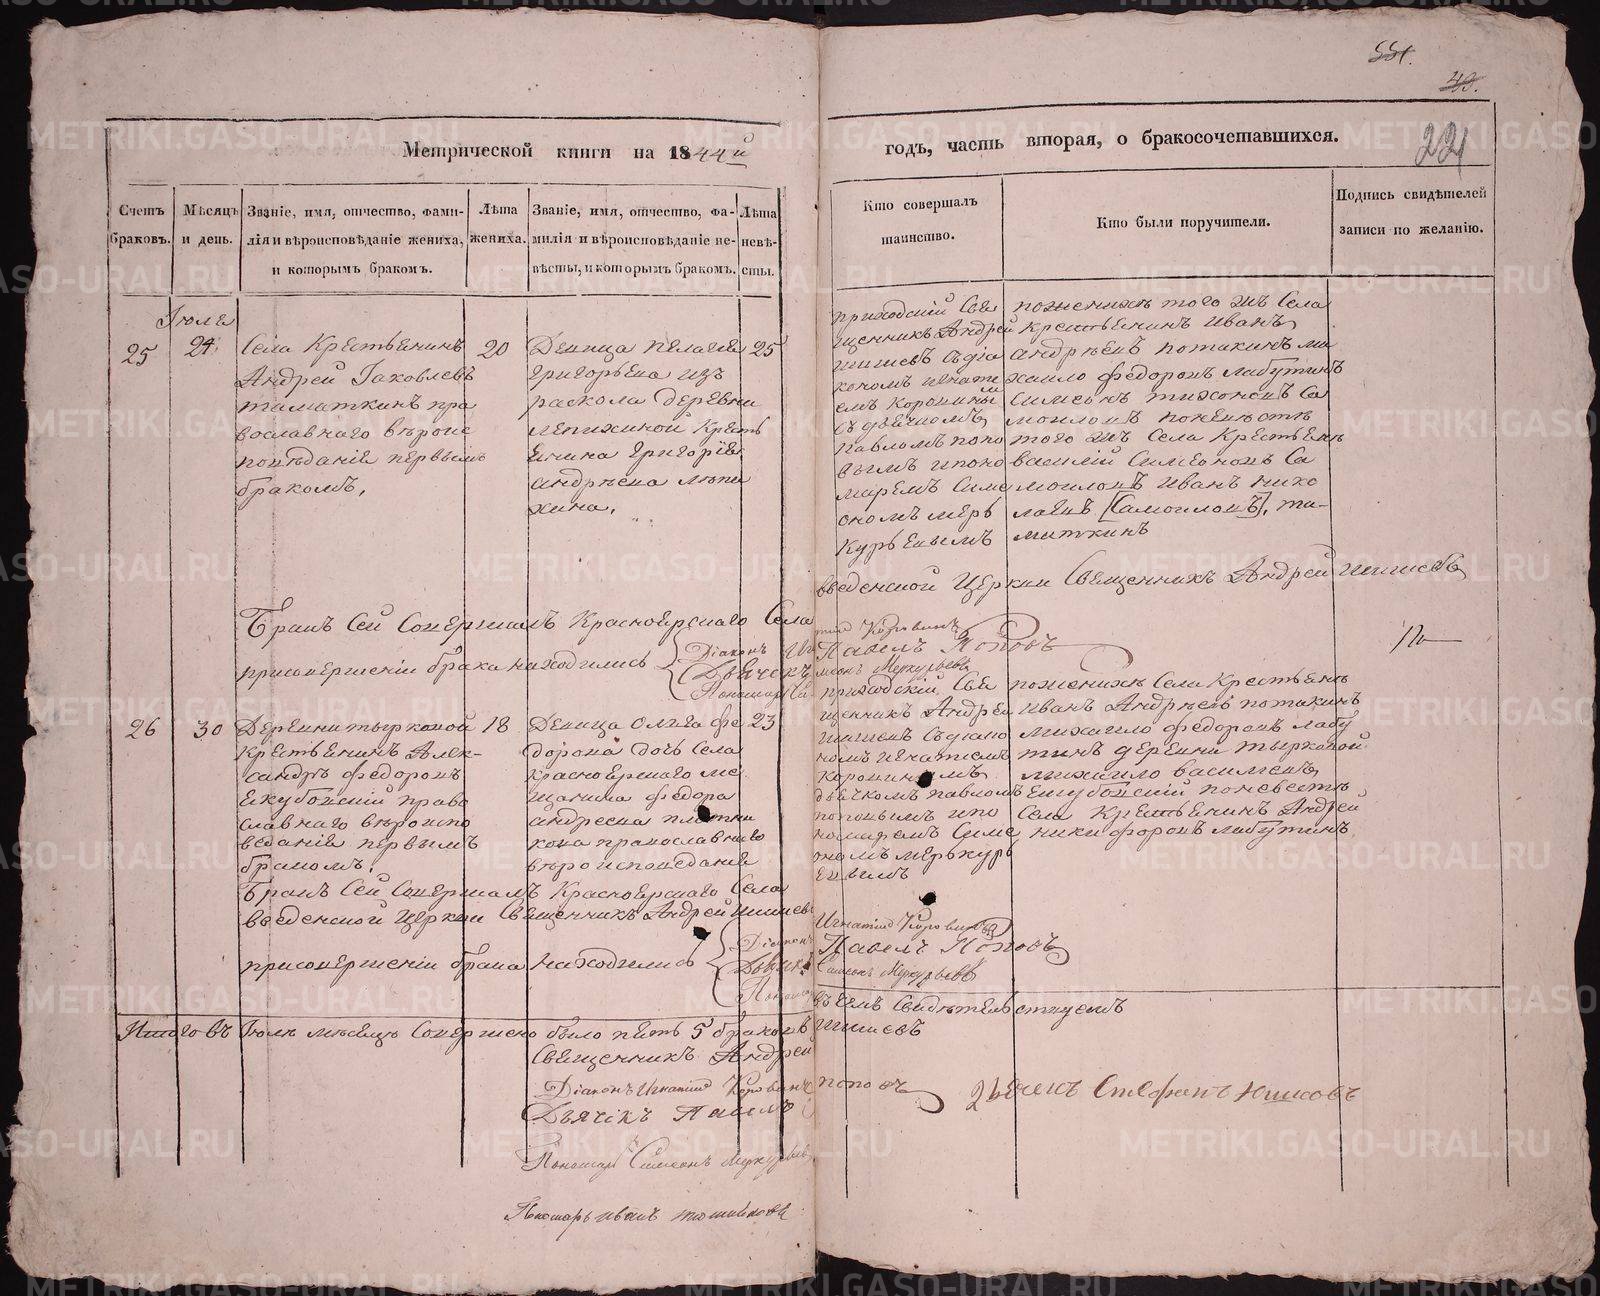 551.
49.
221
Метрической книги на 1844й
годъ, часть вторая, о бракосочетавшихся.
Счетъ браковъ.
Мѣсяцъ и день.
Званіе, имя, отчество, фами-
лія и вѣроисповѣданіе жениха,
и которымъ бракомъ.
Лѣта жениха.
Званіе, имя, отчество, фа-
милія и вѣроисповѣданіе не-
вѣсты, и которымъ бракомъ.
Лѣта невѣ-
сты.
Кто совершалъ
таинство.
Кто были поручители.
Подпись свидѣтелей
записи по желанію.
Іюля
25
24
Села Крестьенинъ
Андрей Іаковлевъ
таматкинъ пра
вославнаго вѣроис
повѣданіе первымъ
бракомъ,
20
Девица Пелагея
Григорьева изъ
раскола деревни
лепихиной Кресть
енина Григорія
андрѣева лѣпи
хина,
25
приходскій Све
щенникъ Андрей
шишевъ съдіа
кономъ игнаті
емъ коровинымъ
съдьячкомъ
павломъ попо
вымъ ипоно
маремъ Симе
ономъ мерь
курьевымъ
поженихѣ того жъ Села
крестьенинъ Иванъ
андрѣевъ потакинъ ми
хаило федоровъ лабутинъ
симеонъ тихоновъ Са
моиловъ поневѣстѣ
того жъ Села Крестьенъ
василій Симеоновъ Са
моиловъ Иванъ нико
лаевъ [Самоиловъ], та-
маткинъ
Бракъ Сей Совершалъ Красноярскаго Села
введенской Церкви Священникъ Андрей шишевъ
присовершеніи брака находились
Діаконъ Игнатій Коровинъ
Дьячекъ Павелъ Поповъ
Пономарь Симеонъ Меркурьевъ
26
30
Деревни тырковой
Крестьенинъ Алек-
сандръ федоровъ
якубовскій право
славнаго вѣроиспо
веданіе первымъ
бракомъ.
18
Девица Ольга фе
дорова дочь Села
красноярскаго ме
щанина федора
андреева плотни
кова православнаго
вѣроисповеданіе
23
приходскій Све
щенникъ Андрей
шишевъ съдіако
номъ игнатіемъ
коровинымъ
дьячкомъ павломъ
поповымъ ипо
номаремъ Симе
ономъ меркурь
евымъ
поженихѣ Села Крестьенъ
иванъ Андрѣевъ потакинъ
михаило федоровъ лабу
тинъ деревни тырковой
михаило васильевъ
якубовскій поневестѣ
Села Крестьенинъ Андрей
никифоровъ лабутинъ
Бракъ Сей Совершалъ Красноярскаго Села
введенской церкви Священникъ Андрей шишевъ
присовершеніи брака находились
Діаконъ Игнатій Коровинъ
Дьячекъ Павелъ Поповъ
Пономарь Симеонъ Меркурьевъ
Итого въ Іюлѣ мѣсяцѣ Совершено было пять 5 браковъ въ чемъ Свидѣтельствуемъ
Священникъ Андрей шишевъ
Діаконъ Игнатій Коровинъ
Дьячекъ Павелъ поповъ
Дьячекъ Стефанъ
Пономарь Симеонъ Меркурьевъ
Пономарь иванъ